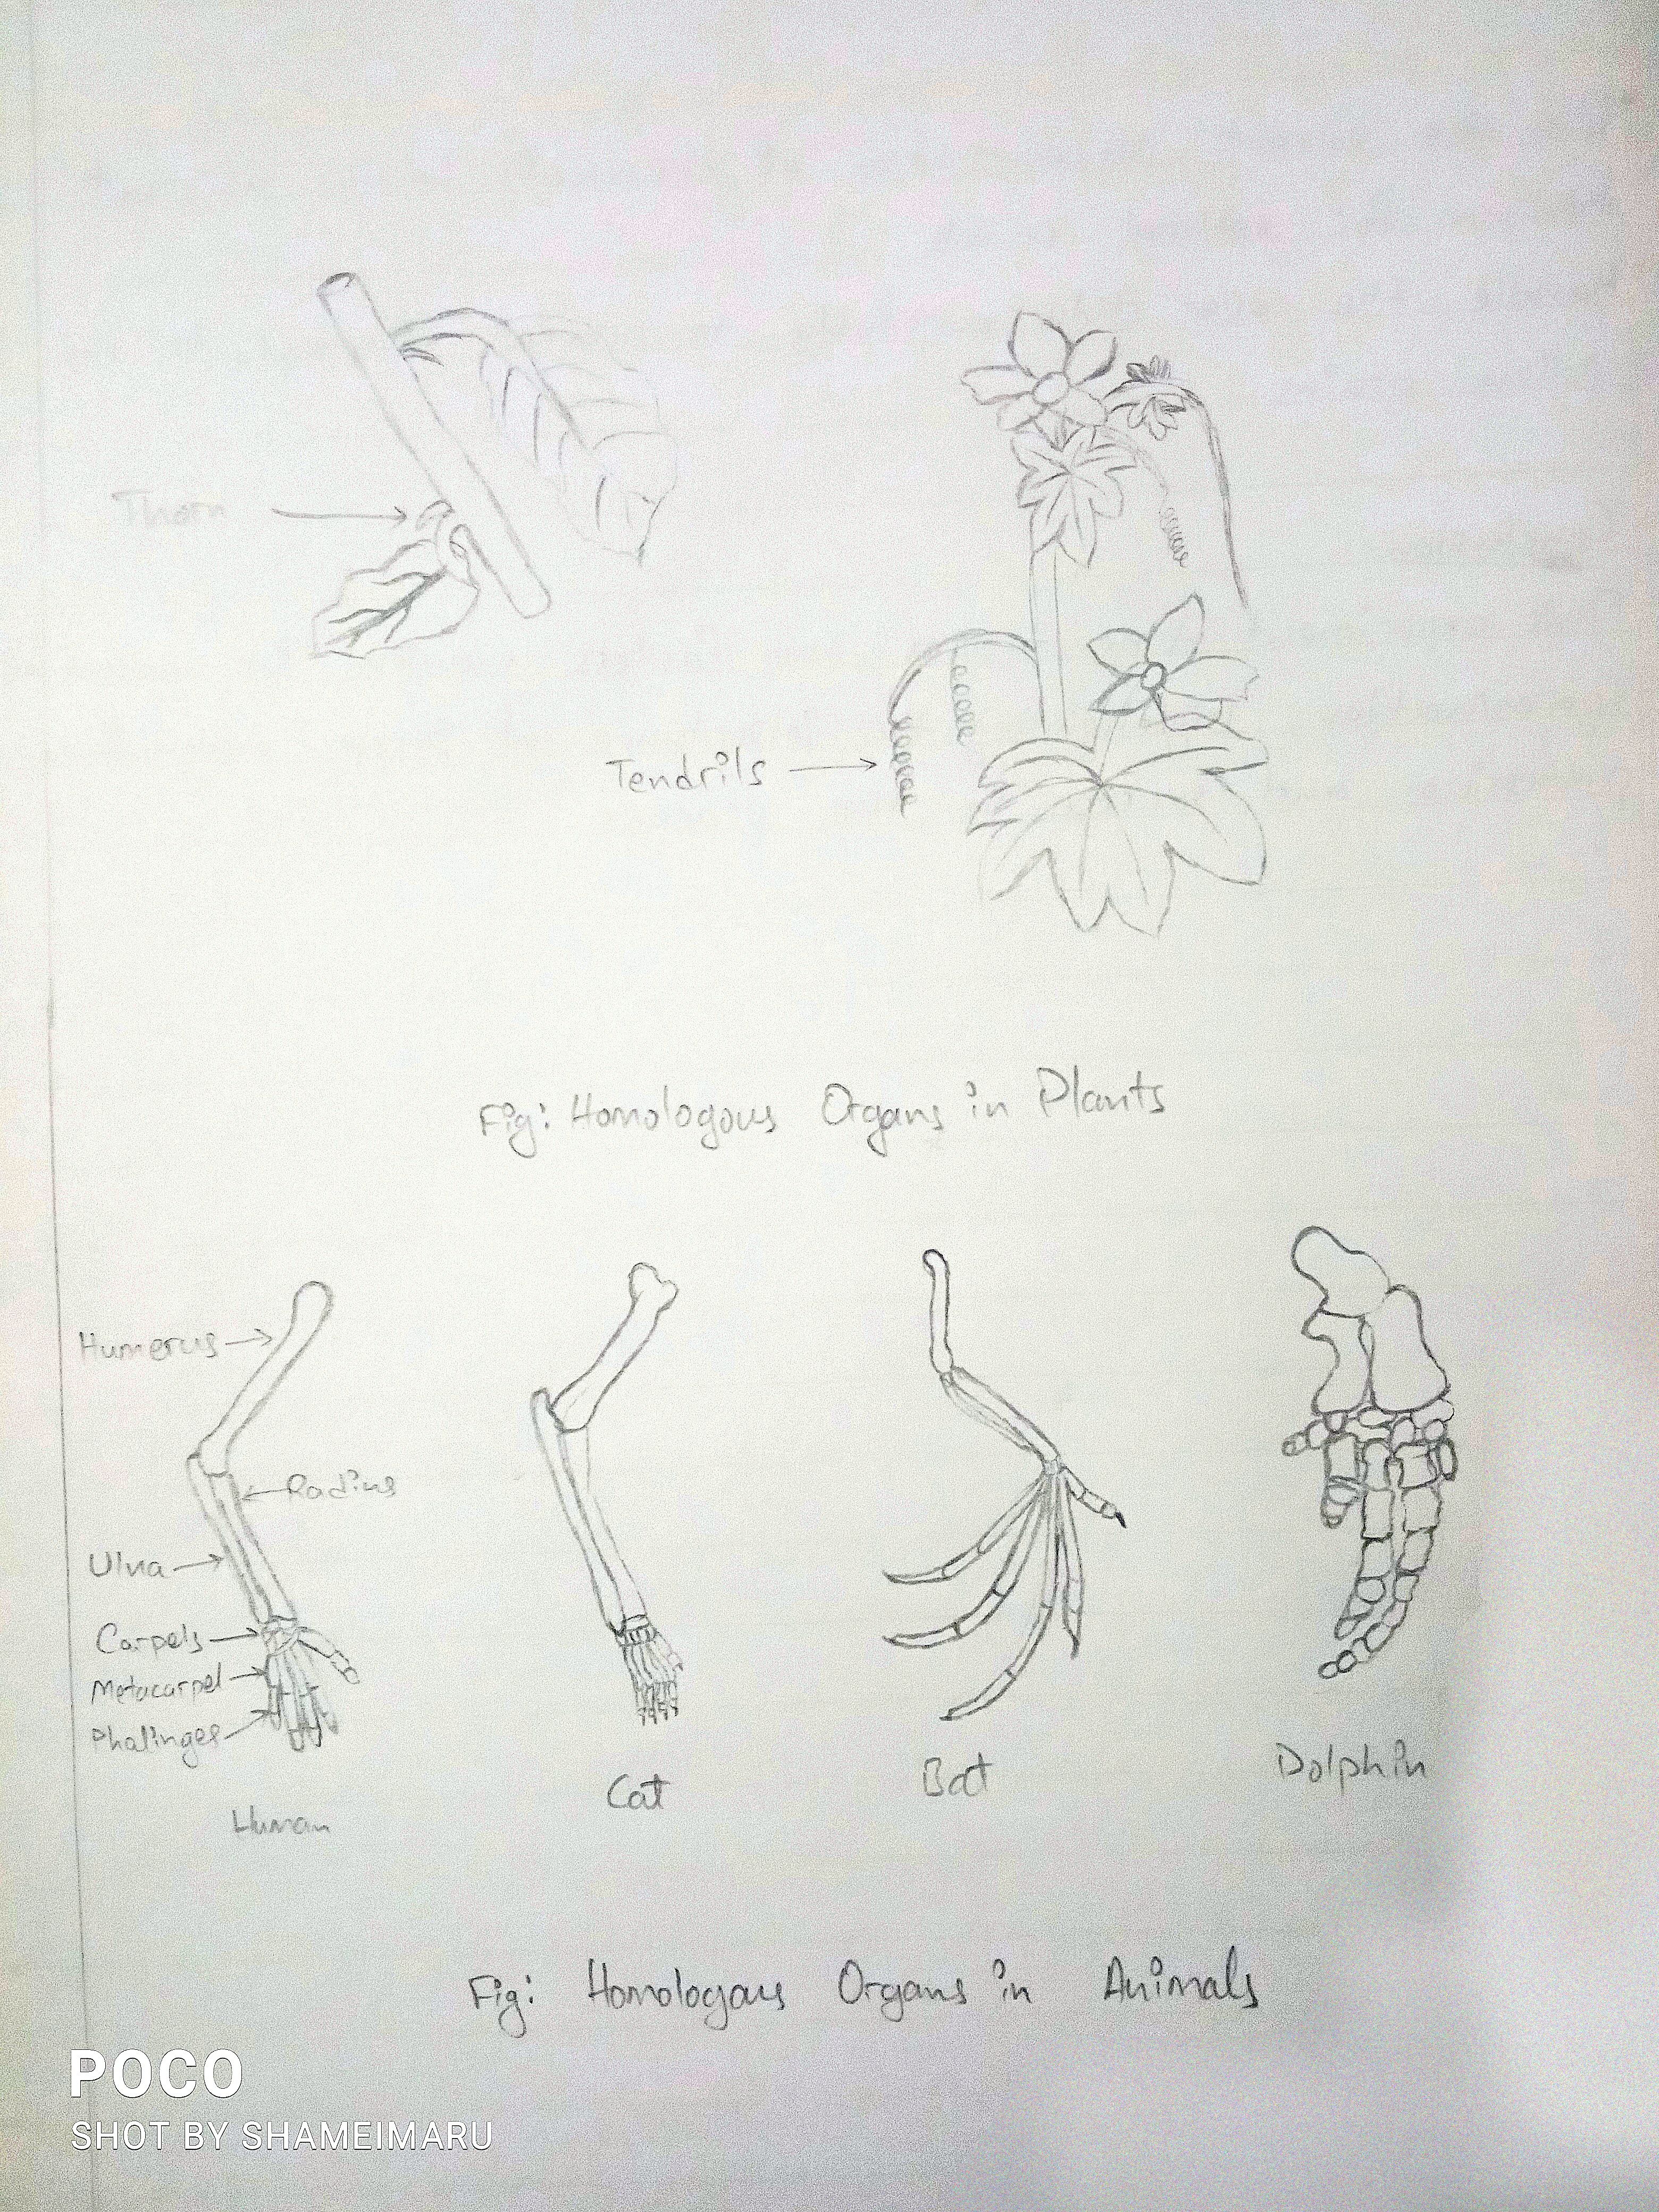 Thorn
Tendrils
Fig: Homologous Organs in Plants
Humerus
Radius
Ulna
Carpels
Metacarpel
Phalinges
Human
Cat
Bat
Dolphin
Fig: Homologous Organs in Animals
POCO
SHOT BY SHAMEIMARU